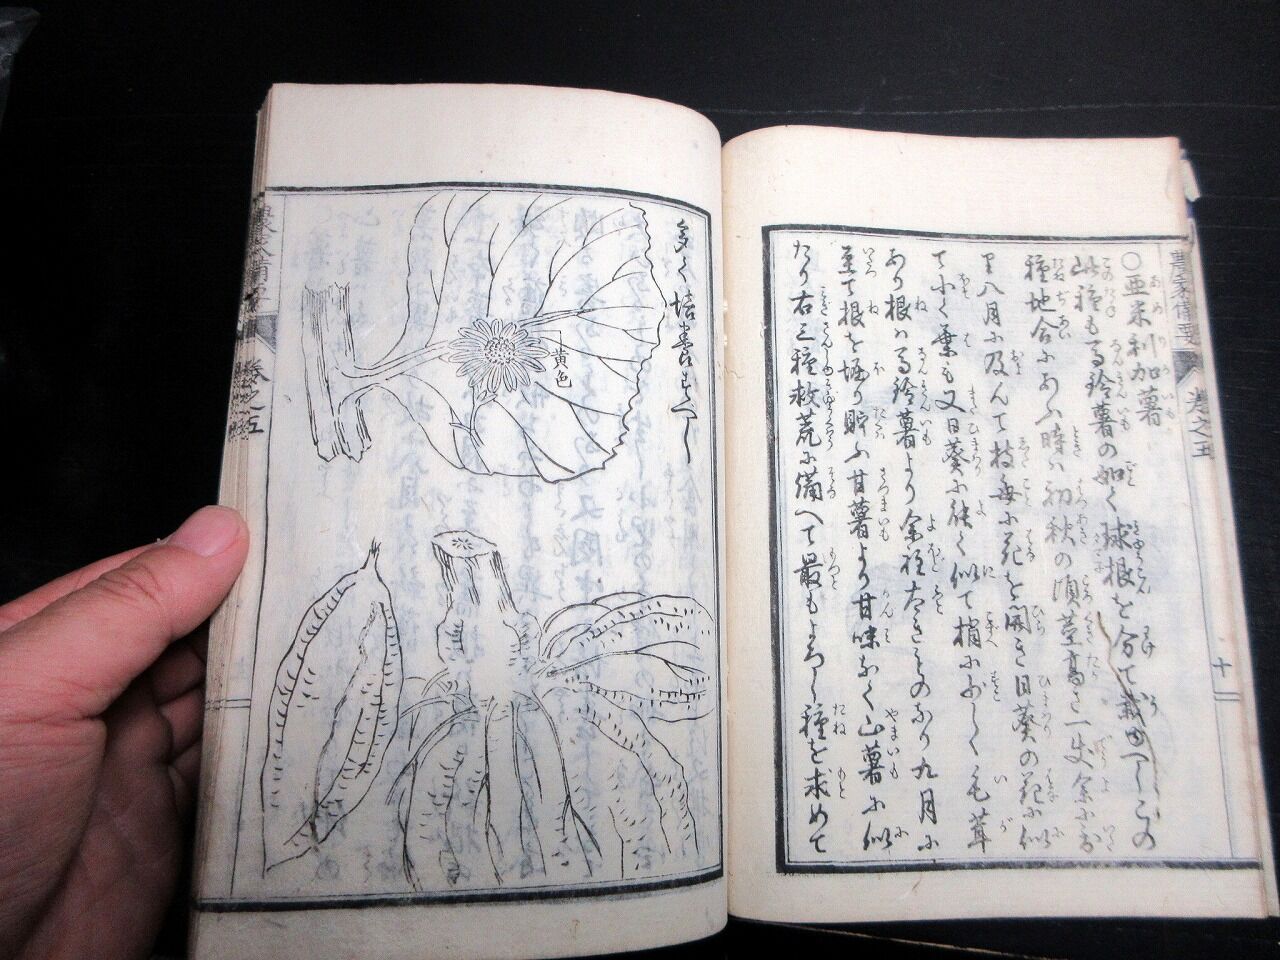 農家備要
巻之五
十
○亜米利加薯
此種も馬鈴薯の如く球根を分て栽べしこの
種地合にあふ時ハ初秋の頃茎高さ一丈余にお
よひ八月に及んて枝毎に花を開き日葵の花に似
て小く葉も又日葵に能く似て梢に
あり根ハ馬鈴薯より余程大きものなり九月に
至て根を掘り貯ふ甘薯より甘味なく山薯に似
たり右三種救荒に備へて最もよろし種を求めて
多く培養すへし
黄色
巻之五